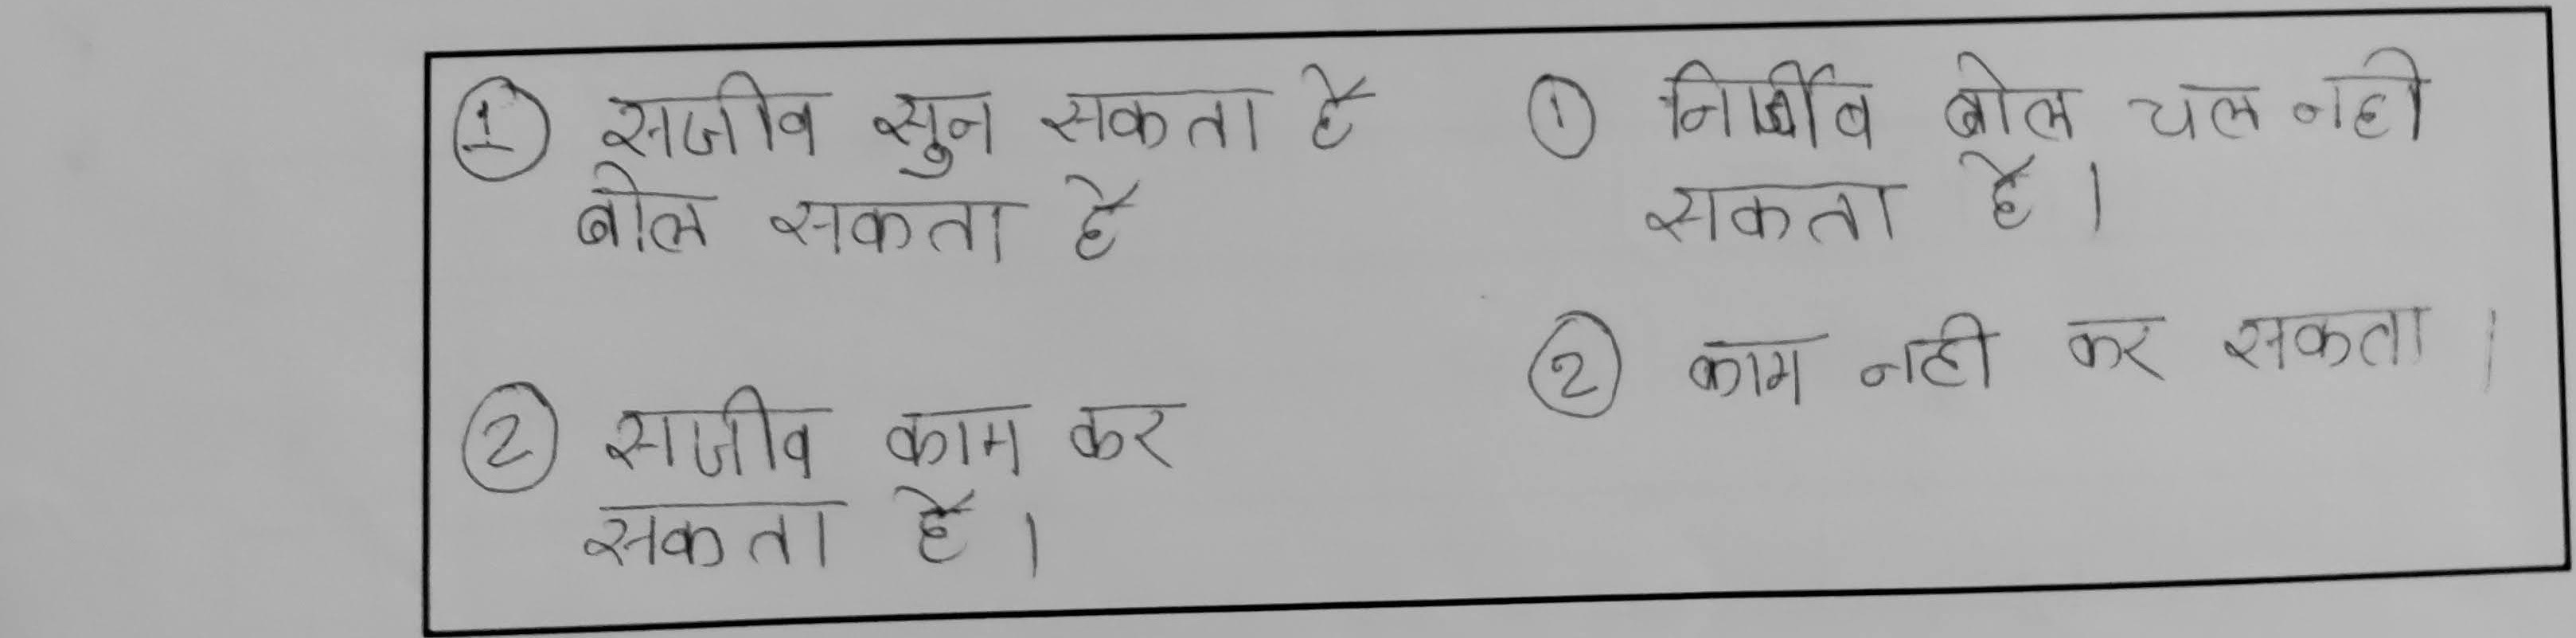 ① सजीव सुन सकता है
बोल सकता है
② सजीव काम कर
सकता है।
① निर्जीव बोल चल नही
सकता है।
② काम नही कर सकता।